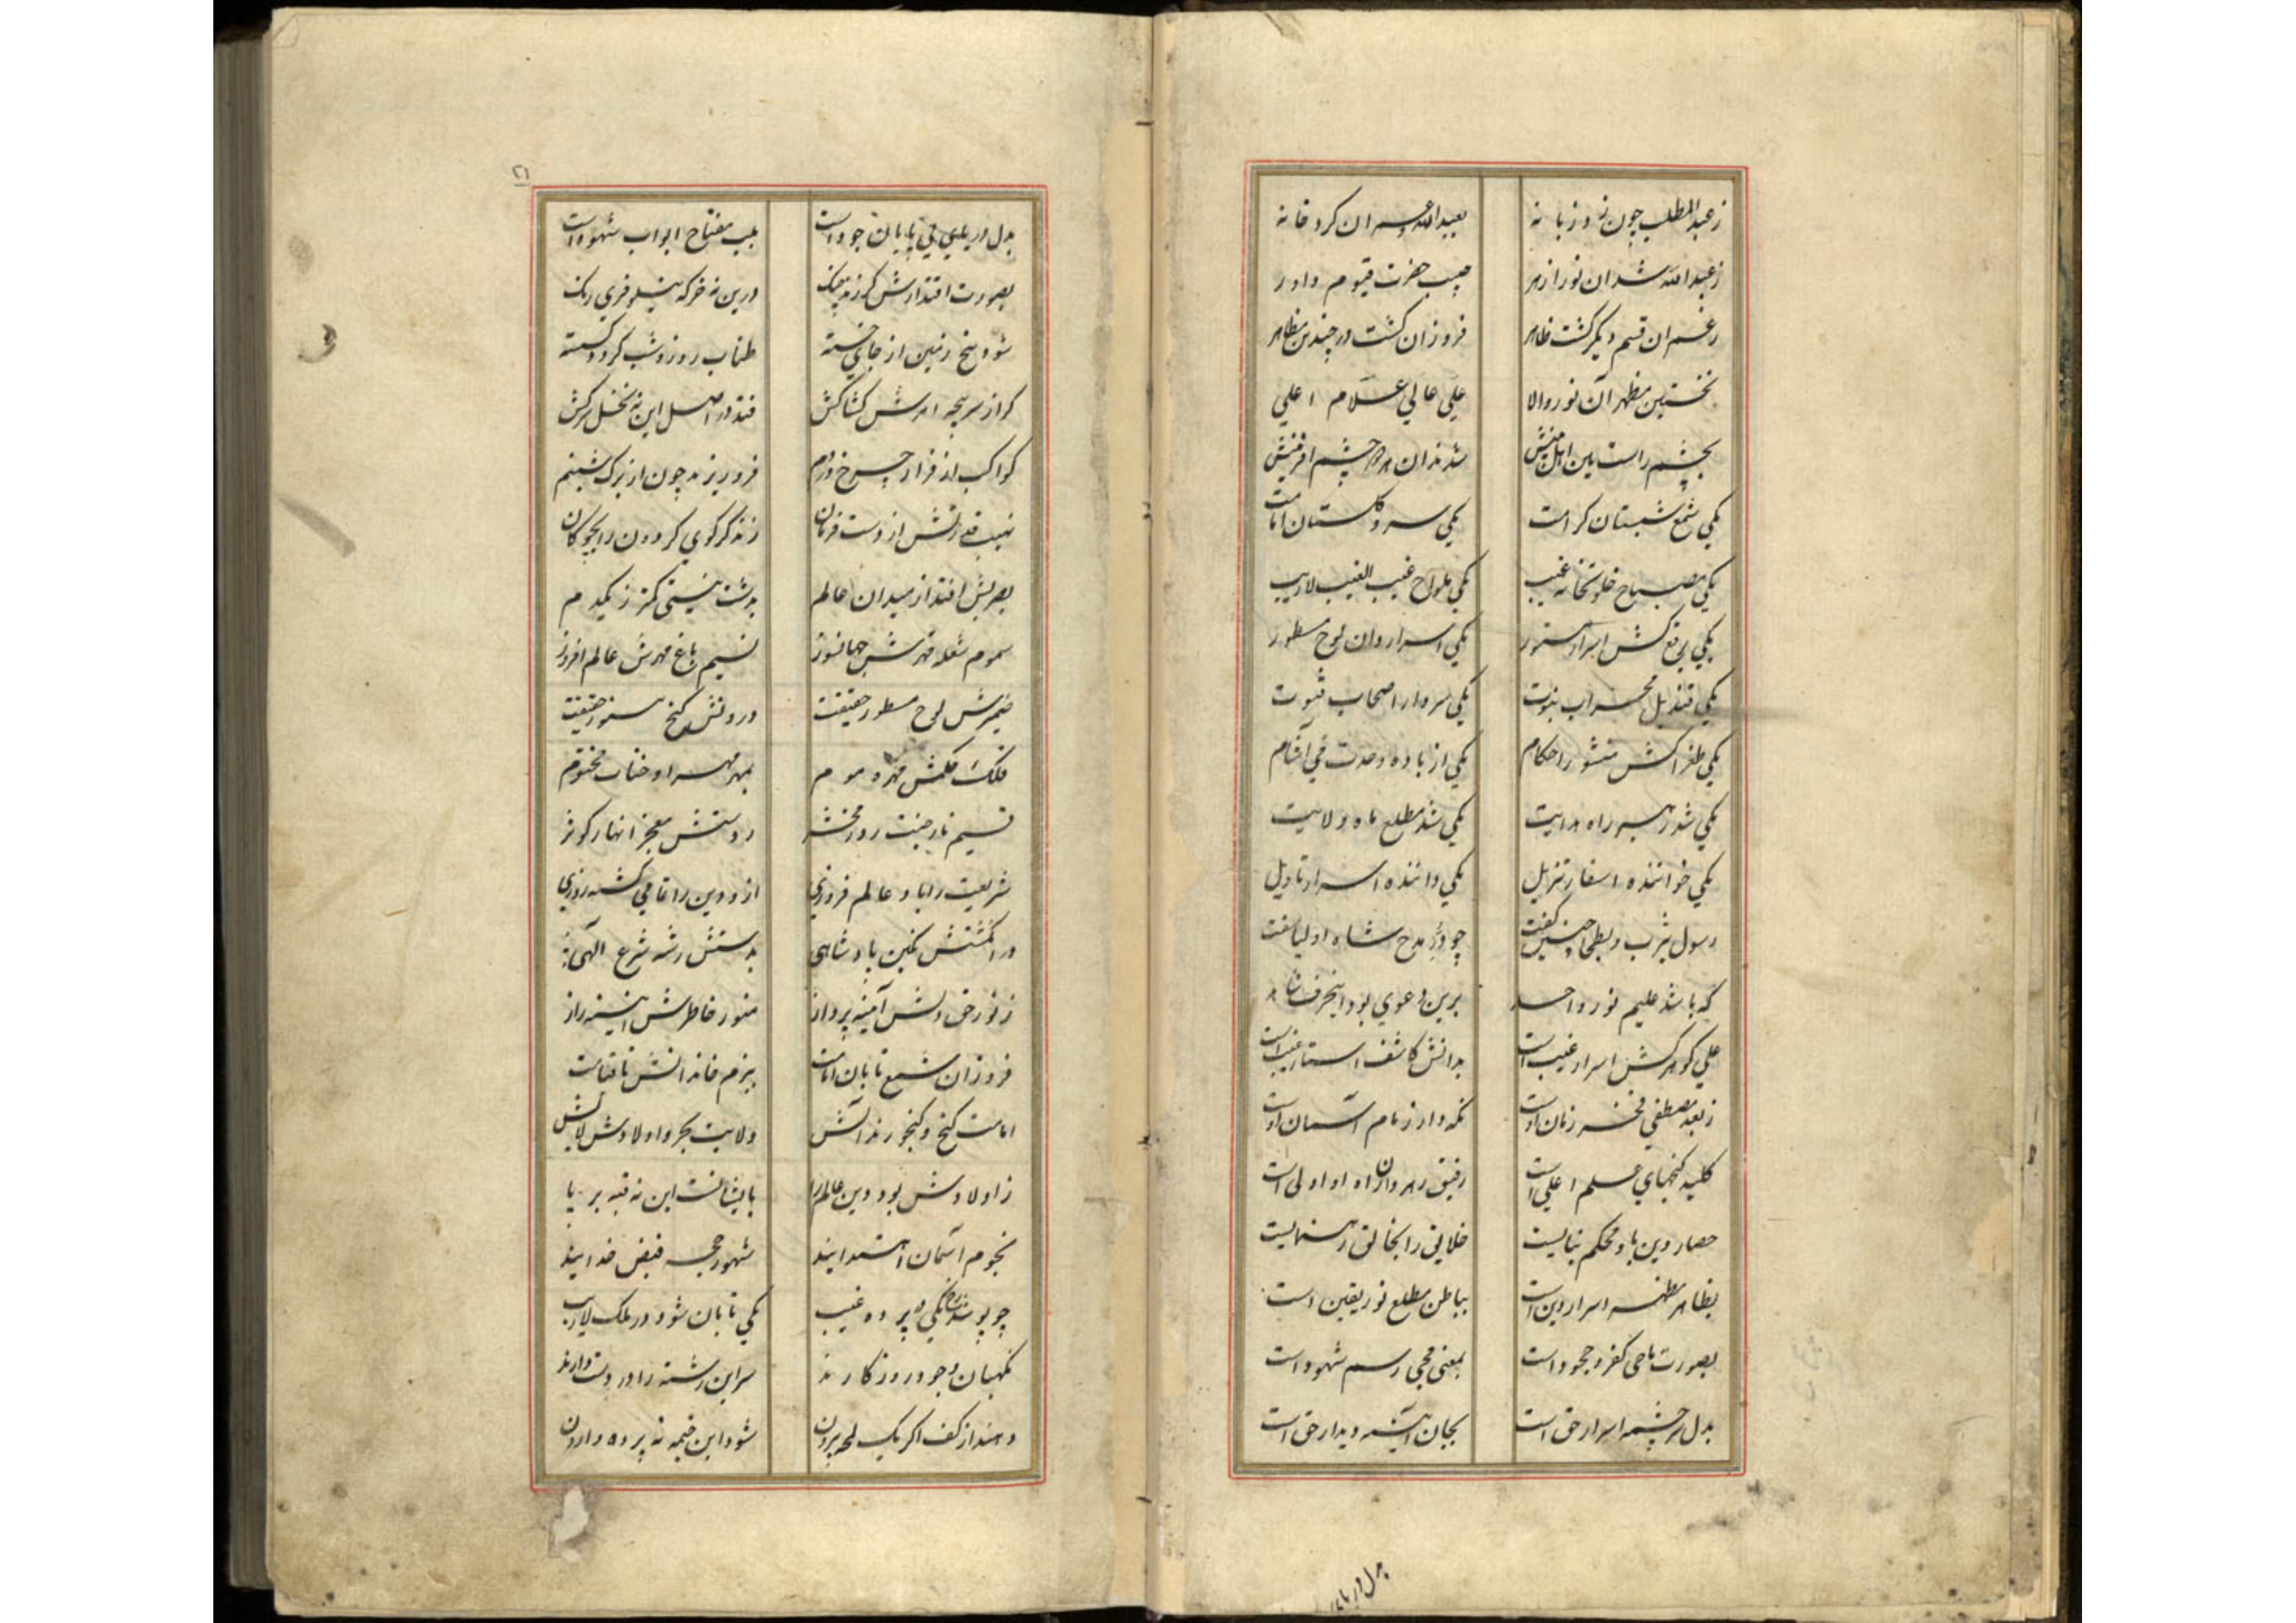 ز عبدالمطلب چون زد زبانه بعبدالله و عمران کرد خانه
ز عبدالله شد ان نور ازهر حبیب حضرت قیوم داور
ز عمران قسم دیگر گشت ظاهر فروزان گشت در چندین مظاهر
نخستین مظهر آن نور والا علی عالی علام اعلی
بچشم راست بین اهل بینش شدند ان هر دو چشم افرینش
یکی شمع شبستان کرامت یکی سرو گلستان امامت
یکی مصباح خلوتخانه غیب یکی ملواح غیب الغیب لاریب
یکی برقع کش اسرار مستور یکی اسراردان لوح مسطور
یکی قندیل محراب نبوت یکی سردار اصحاب فتوت
یکی طغراکش منشور احکام یکی از باده وحدت می آشام
یکی شد رهبر راه هدایت یکی شد مطلع ماه ولایت
یکی خواننده اسفار تنزیل یکی داننده اسرار تاویل
رسول یثرب و بطحا چنین گفت چو در مدح شاه اولیا سفت
که باشد علیم نور واحد برین دعوی بود اینحرف شاهد
علی گوهرکش اسرار غیب است بدانش کاشف استار غیب است
ز بعد مصطفی فخر زمان اوست نگه دار زمام آسمان اوست
کلید گنجهای علم اعلی است رفیق رهروان راه او اولی است
حصار دین باو محکم بنایست خلایق را بخالق رهنمایست
بظاهر مظهر اسرار دین است بباطن مطلع نور یقین است
بصورت ماحی کفر و جحود است بمعنی محیی رسم شهود است
بدل سرچشمه اسرار حق است بجان آیینه دیدار حق است
بدل دریای
۲۱
بدل دریای بی پایان جود است بلب مفتاح ابواب شهود است
بصورت اقتدارش گر زند چنگ درین نه خرگه نیلوفری رنگ
شود میخ زمین از جای جسته طناب روز و شب گردد گسسته
گر از سرپنجه امرش کشاکش فتد در اصل این نه نخل سرکش
کواکب از فراز چرخ درهم فرو ریزند چون از برگ شبنم
نهیب قدرتش از دست فرمان زند گر گوی گردون را بچوگان
بصرش افتد از میدان عالم بدشت نیستی کمتر ز یکدم
سموم شعله قهرش جهانسوز نسیم باغ مهرش عالم افروز
ضمیرش لوح مسطور حقیقت درونش گنج مستور حقیقت
فلک حکمش مهره موم بمهر مهر او جنات مختوم
قسیم نار جنت روز محشر ز دستش معجز انهار کوثر
شریعت را باو عالم فروزی ازو دین را تمامی گشته روزی
در انگشتش نگین پادشاهی بدستش رشته شرع الهی
ز نور حق دلش آیینه پرداز منور خاطرش آیینه راز
فروزان شمع تابان امامت ببزم خاندانش تا قیامت
امامت گنج و گنجورند آلش ولایت بحر و اولادش لآلش
ز اولادش بود دین عالم را بایشانست این نه قبه بر پا
نجوم آسمان اهتدایند شهور حجه فیض خدایند
چو پوشد رخ یکی در پرده غیب یکی تابان شود در ملک لاریب
نگهبان وجود روزگارند سر این رشته را در دست دارند
دهند از کف اگر یک لمحه بیرون شود این خیمه نه پرده وارون